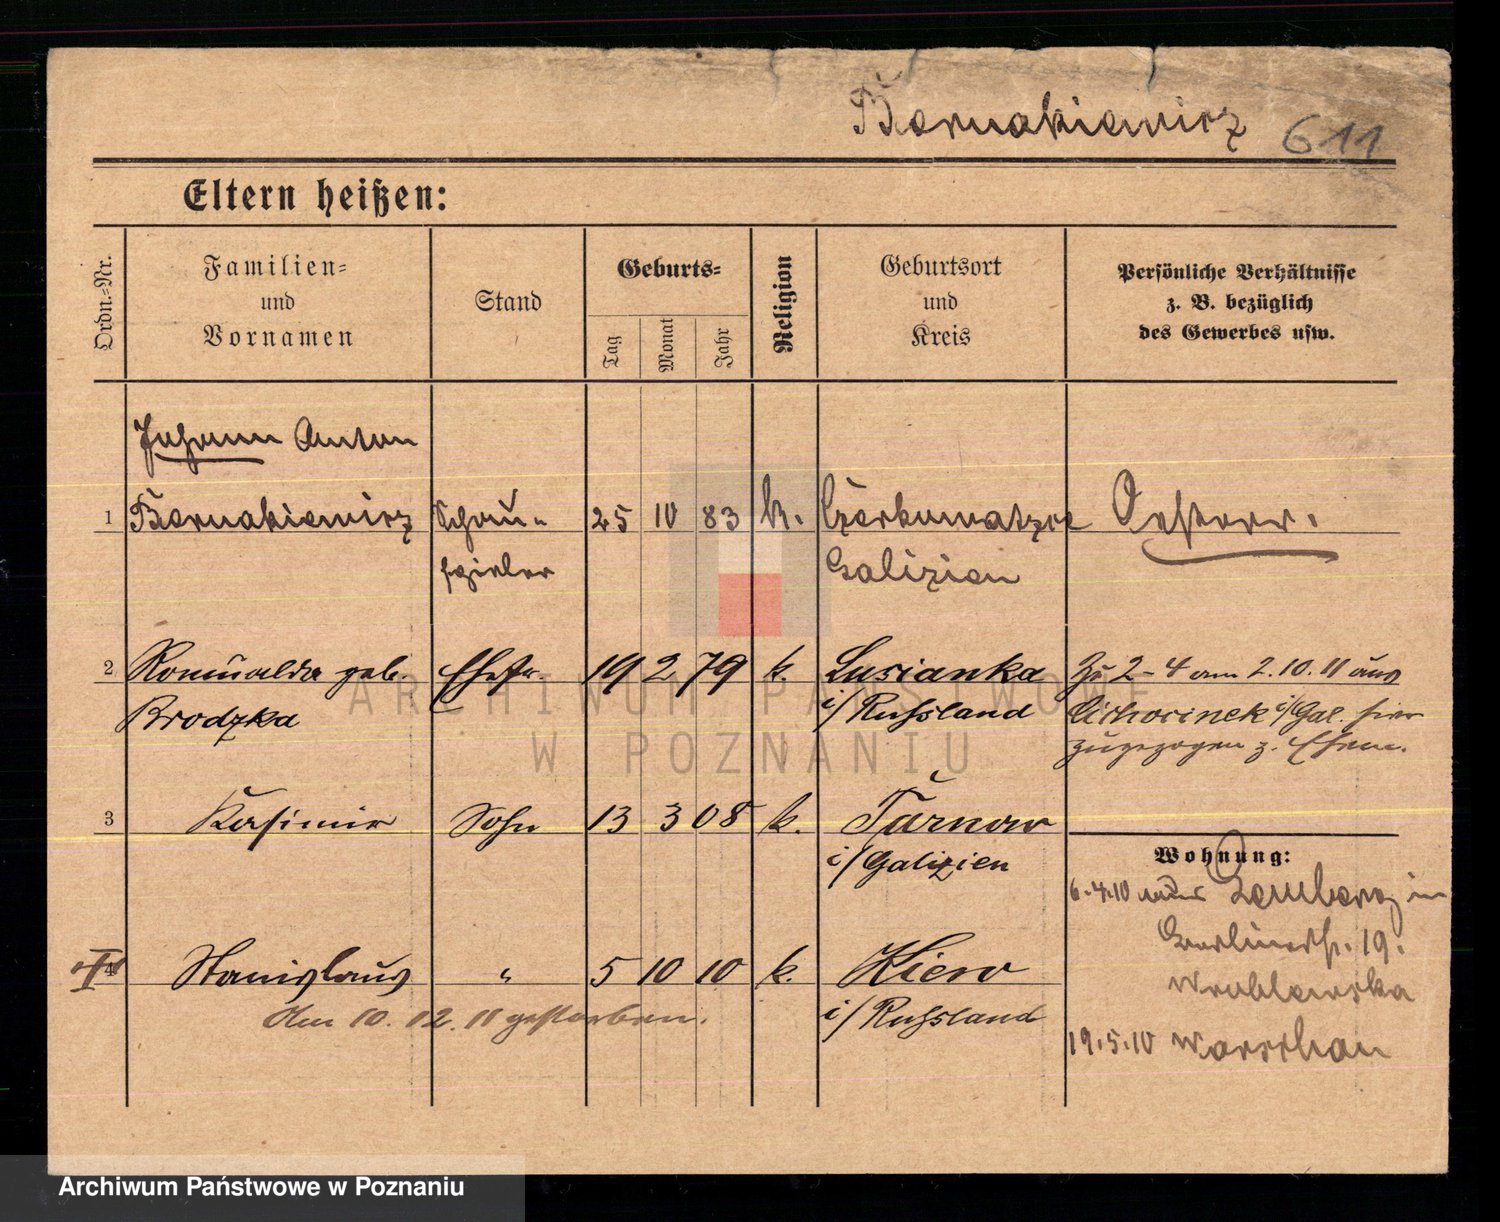 Bernakiewicz 611
Eltern heißen:
Ordn.-Nr.
Familien-
und
Vornamen
Stand
Geburts-
Tag
Monat
Jahr
Religion
Geburtsort
und
Kreis
Persönliche Verhältnisse
z. B. bezüglich
des Gewerbes usw.
Johann Anton
1 Bernakiewicz Schau- 25 10 83 k. Oesterr.
spieler Galizien
2 Romualda geb. Ehefr. 19 2 79 k. Lusianka Zu 2-4 am 2.10.11 aus
Brodzka i/Russland i/Gal. hier
zugezogen z. Ehem.
3 Kasimir Sohn 13 3 08 k. Tarnow
i/Galizien
Wohnung:
6.4.10 Lemberg in
Berlinerstr. 19.
4 Stanislaus " 5 10 10 k. Kiew
Wroblewska
Am 10.12.11 gestorben. i/Russland
19.5.10 Warschau
ARCHIWUM PAŃSTWOWE
W POZNANIU
Archiwum Państwowe w Poznaniu